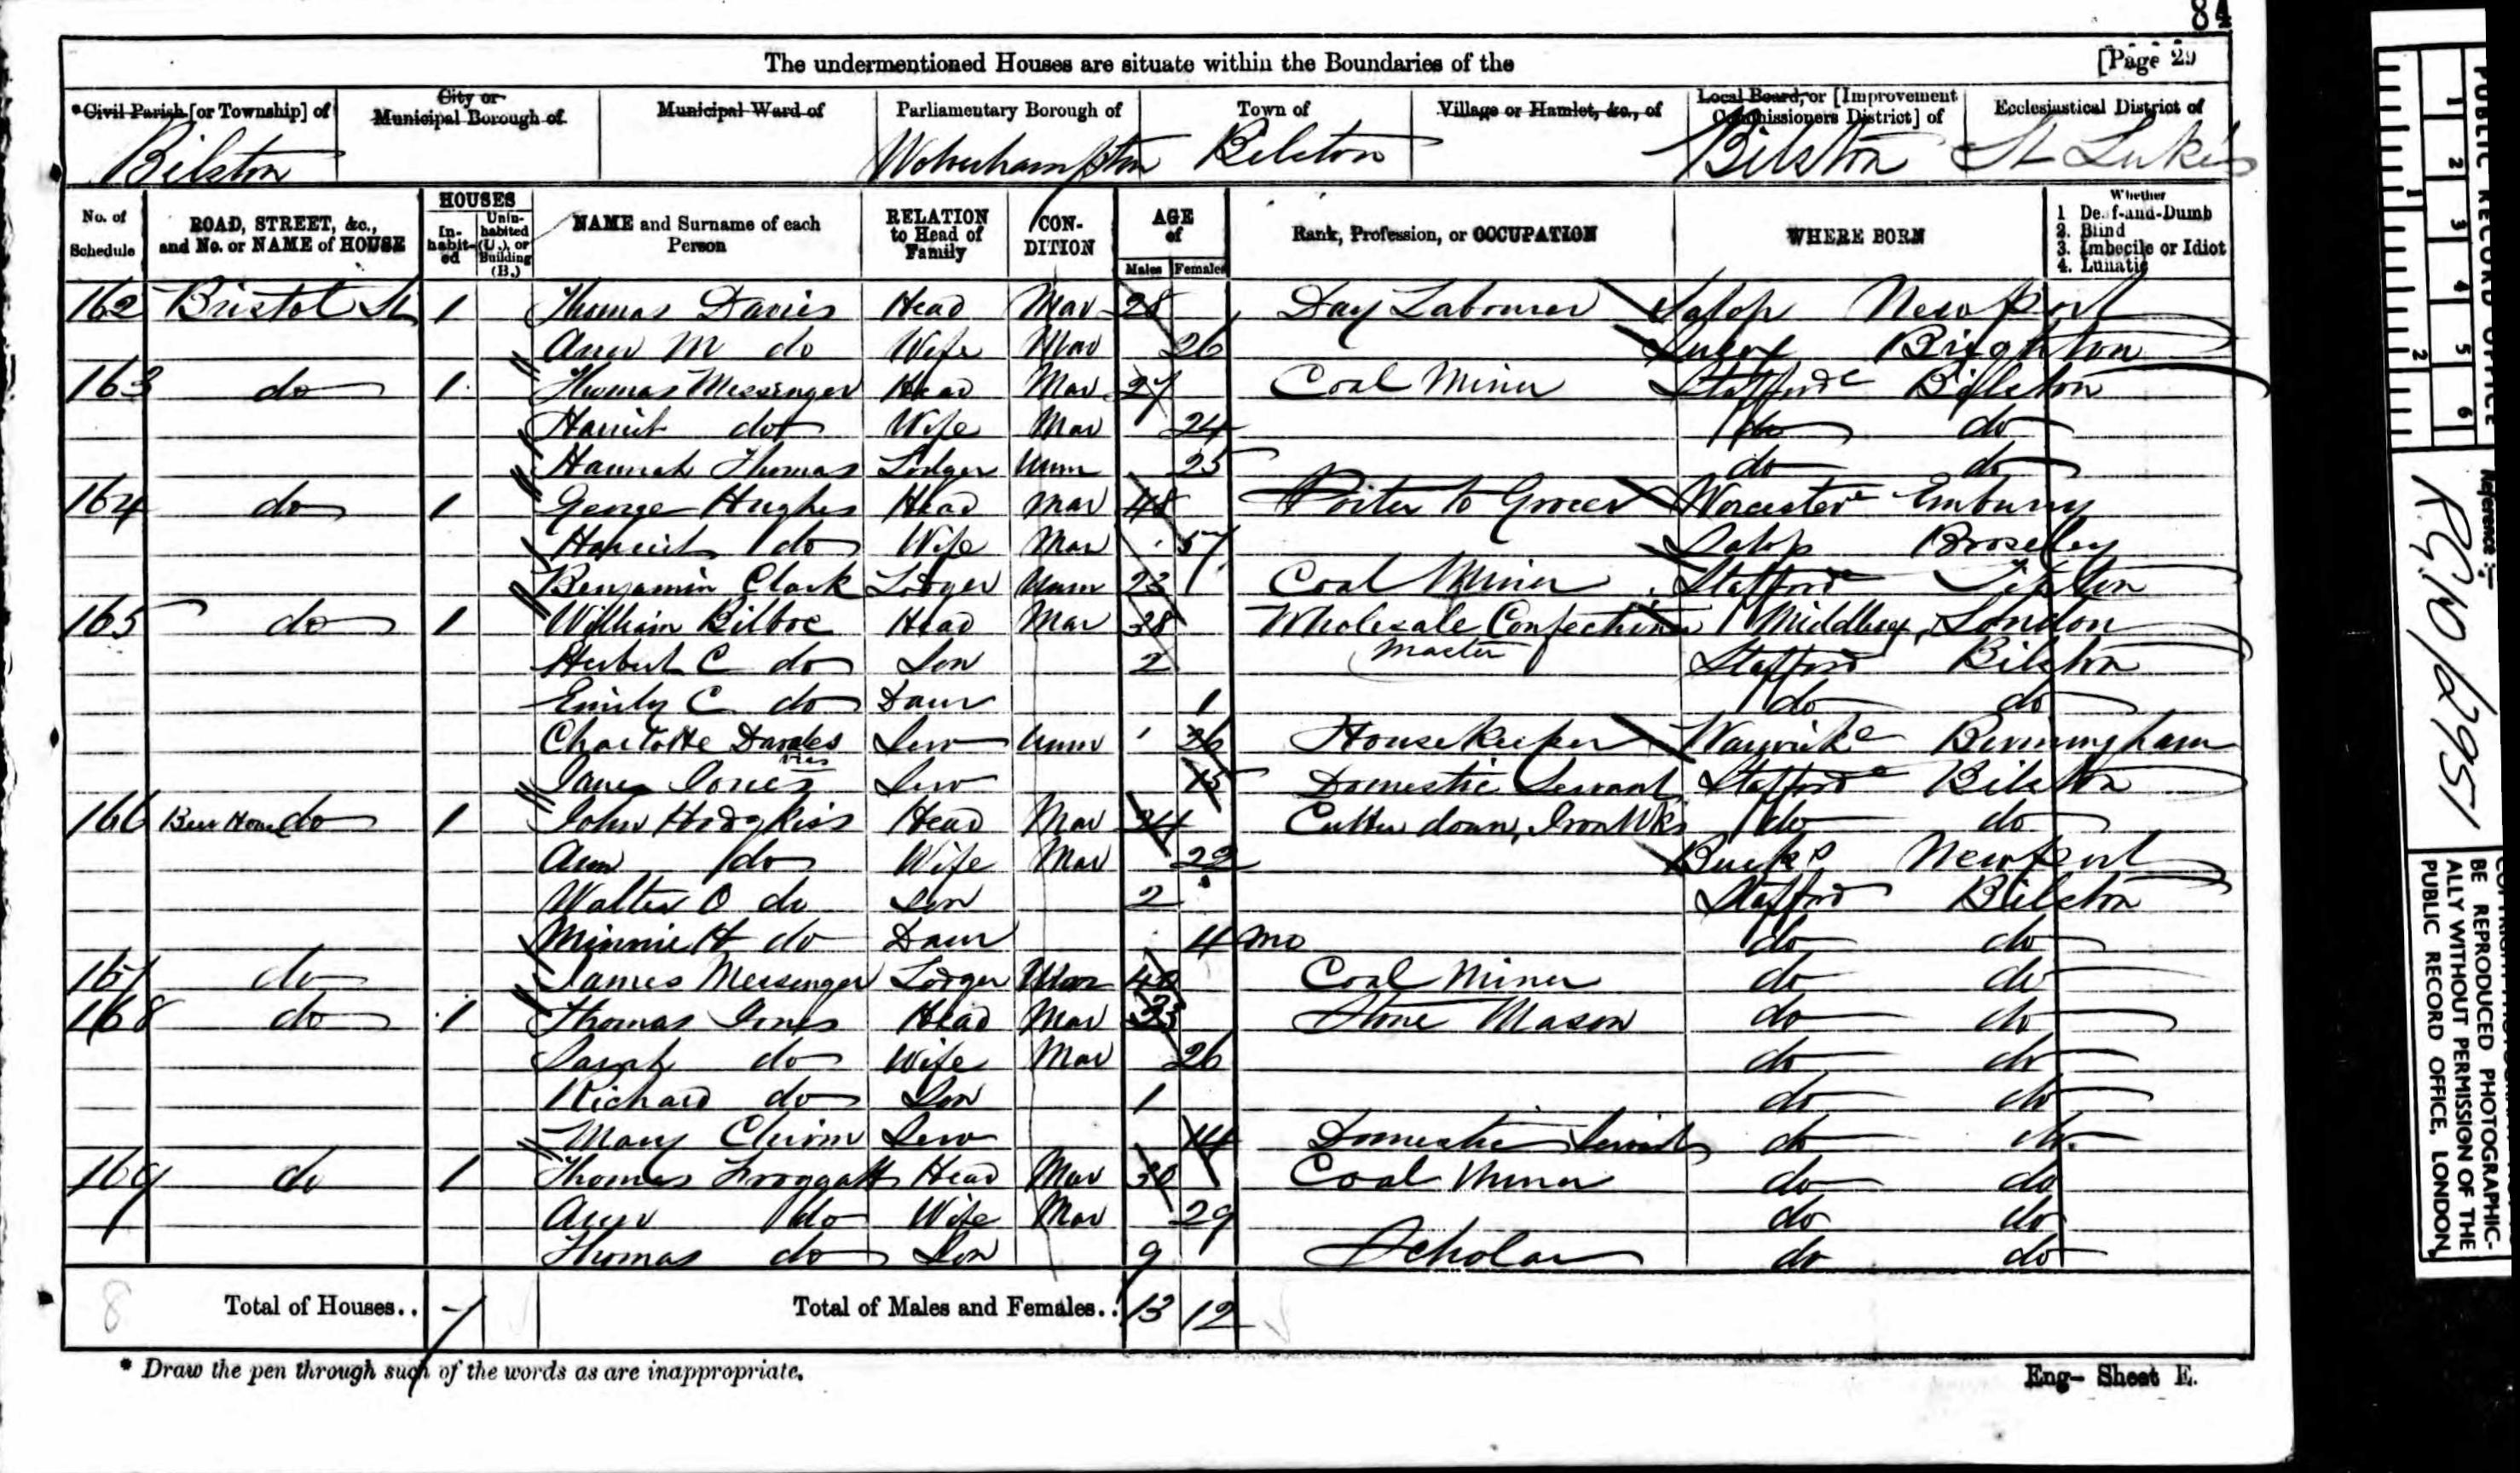 84
The undermentioned Houses are situate within the Boundaries of the [Page 29
*Civil Parish [or Township] of City or Municipal Borough of Municipal Ward of Parliamentary Borough of Town of Village or Hamlet, &c., of Local Board, or [Improvement Commissioners District] of Ecclesiastical District of
Bilston Wolverhampton Bilston Bilston St Luke's
No. of Schedule ROAD, STREET, &c., and No. or NAME of HOUSE HOUSES In-habit-ed Unin-habited (U.), or Building (B.) NAME and Surname of each Person RELATION to Head of Family CON-DITION AGE of Males Females Rank, Profession, or OCCUPATION WHERE BORN Whether 1 Deaf-and-Dumb 2. Blind 3. Imbecile or Idiot 4. Lunatic
162 Bristol St 1 Thomas Davies Head Mar 28 Day Labourer Salop Newport
Ann M do Wife Mar 26 Brighton
163 do 1 Thomas Messenger Head Mar 27 Coal Miner Stafford Bilston
Harriet do Wife Mar 24 do do
Hannah Thomas Lodger Unm 25 do do
164 do 1 George Hughes Head Mar 48 Porter to Grocer Worcester
Harriet do Wife Mar 57 Salop Broseley
Benjamin Clark Lodger Unm 23 Coal Miner Stafford Tipton
165 do 1 William Bilboe Head Mar 38 Wholesale Confectioner Middlesex, London
Master
Herbert C do Son 2 Stafford Bilston
Emily C do Daur 1 do do
Charlotte Serv Unm 26 Housekeeper Warwick Birmingham
Jane Jones Serv 15 Domestic Servant Stafford Bilston
166 Beer House do 1 John Hodgkiss Head Mar 24 Cutter down, Iron Wks do do
Ann do Wife Mar 22 Bucks Newport
Walter O do Son 2 Stafford Bilston
Minnie H do Daur 4 mo do do
167 do James Messenger Lodger 40 Coal Miner do do
168 do 1 Thomas Jones Head Mar Stone Mason do do
Sarah do Wife Mar 26 do do
Richard do Son 1 do do
Mary Serv 14 Domestic Servant do do
169 do 1 Thomas Froggatt Head Mar 30 Coal Miner do do
Ann do Wife Mar 29 do do
Thomas do Son 9 Scholar do do
8 Total of Houses.. 7 Total of Males and Females.. 13 12
* Draw the pen through such of the words as are inappropriate.
Eng- Sheet E.
PUBLIC RECORD OFFICE
1 2 3 4 5 6
1 2
Reference :-
R.G. 10/2951
BE REPRODUCED PHOTOGRAPHIC-
ALLY WITHOUT PERMISSION OF THE
PUBLIC RECORD OFFICE, LONDON